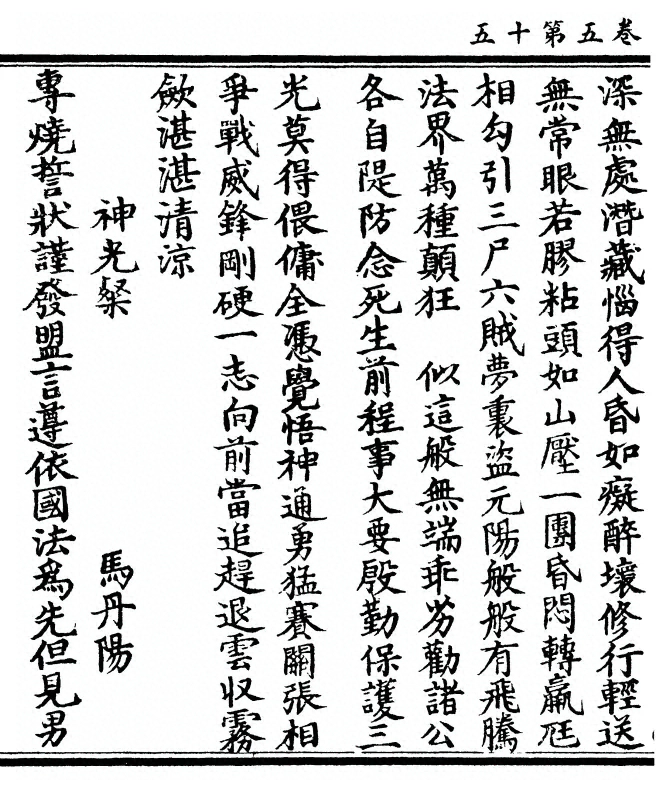 五十第五卷
深無處潛藏惱得人昏如癡醉壞修行輕送
無常眼若膠粘頭如山壓一團昏悶轉羸尫
相勾引三尸六賊夢裏盜元陽般般有飛騰
法界萬種顛狂　似這般無端乖劣勸諸公
各自隄防念死生前程事大要殷勤保護三
光莫得偎傭全憑覺悟神通勇猛賽關張相
爭戰威鋒剛硬一志向前當追趕退雲収霧
斂湛湛清涼
神光粲　馬丹陽
專燒誓狀謹發盟言遵依國法為先但見男